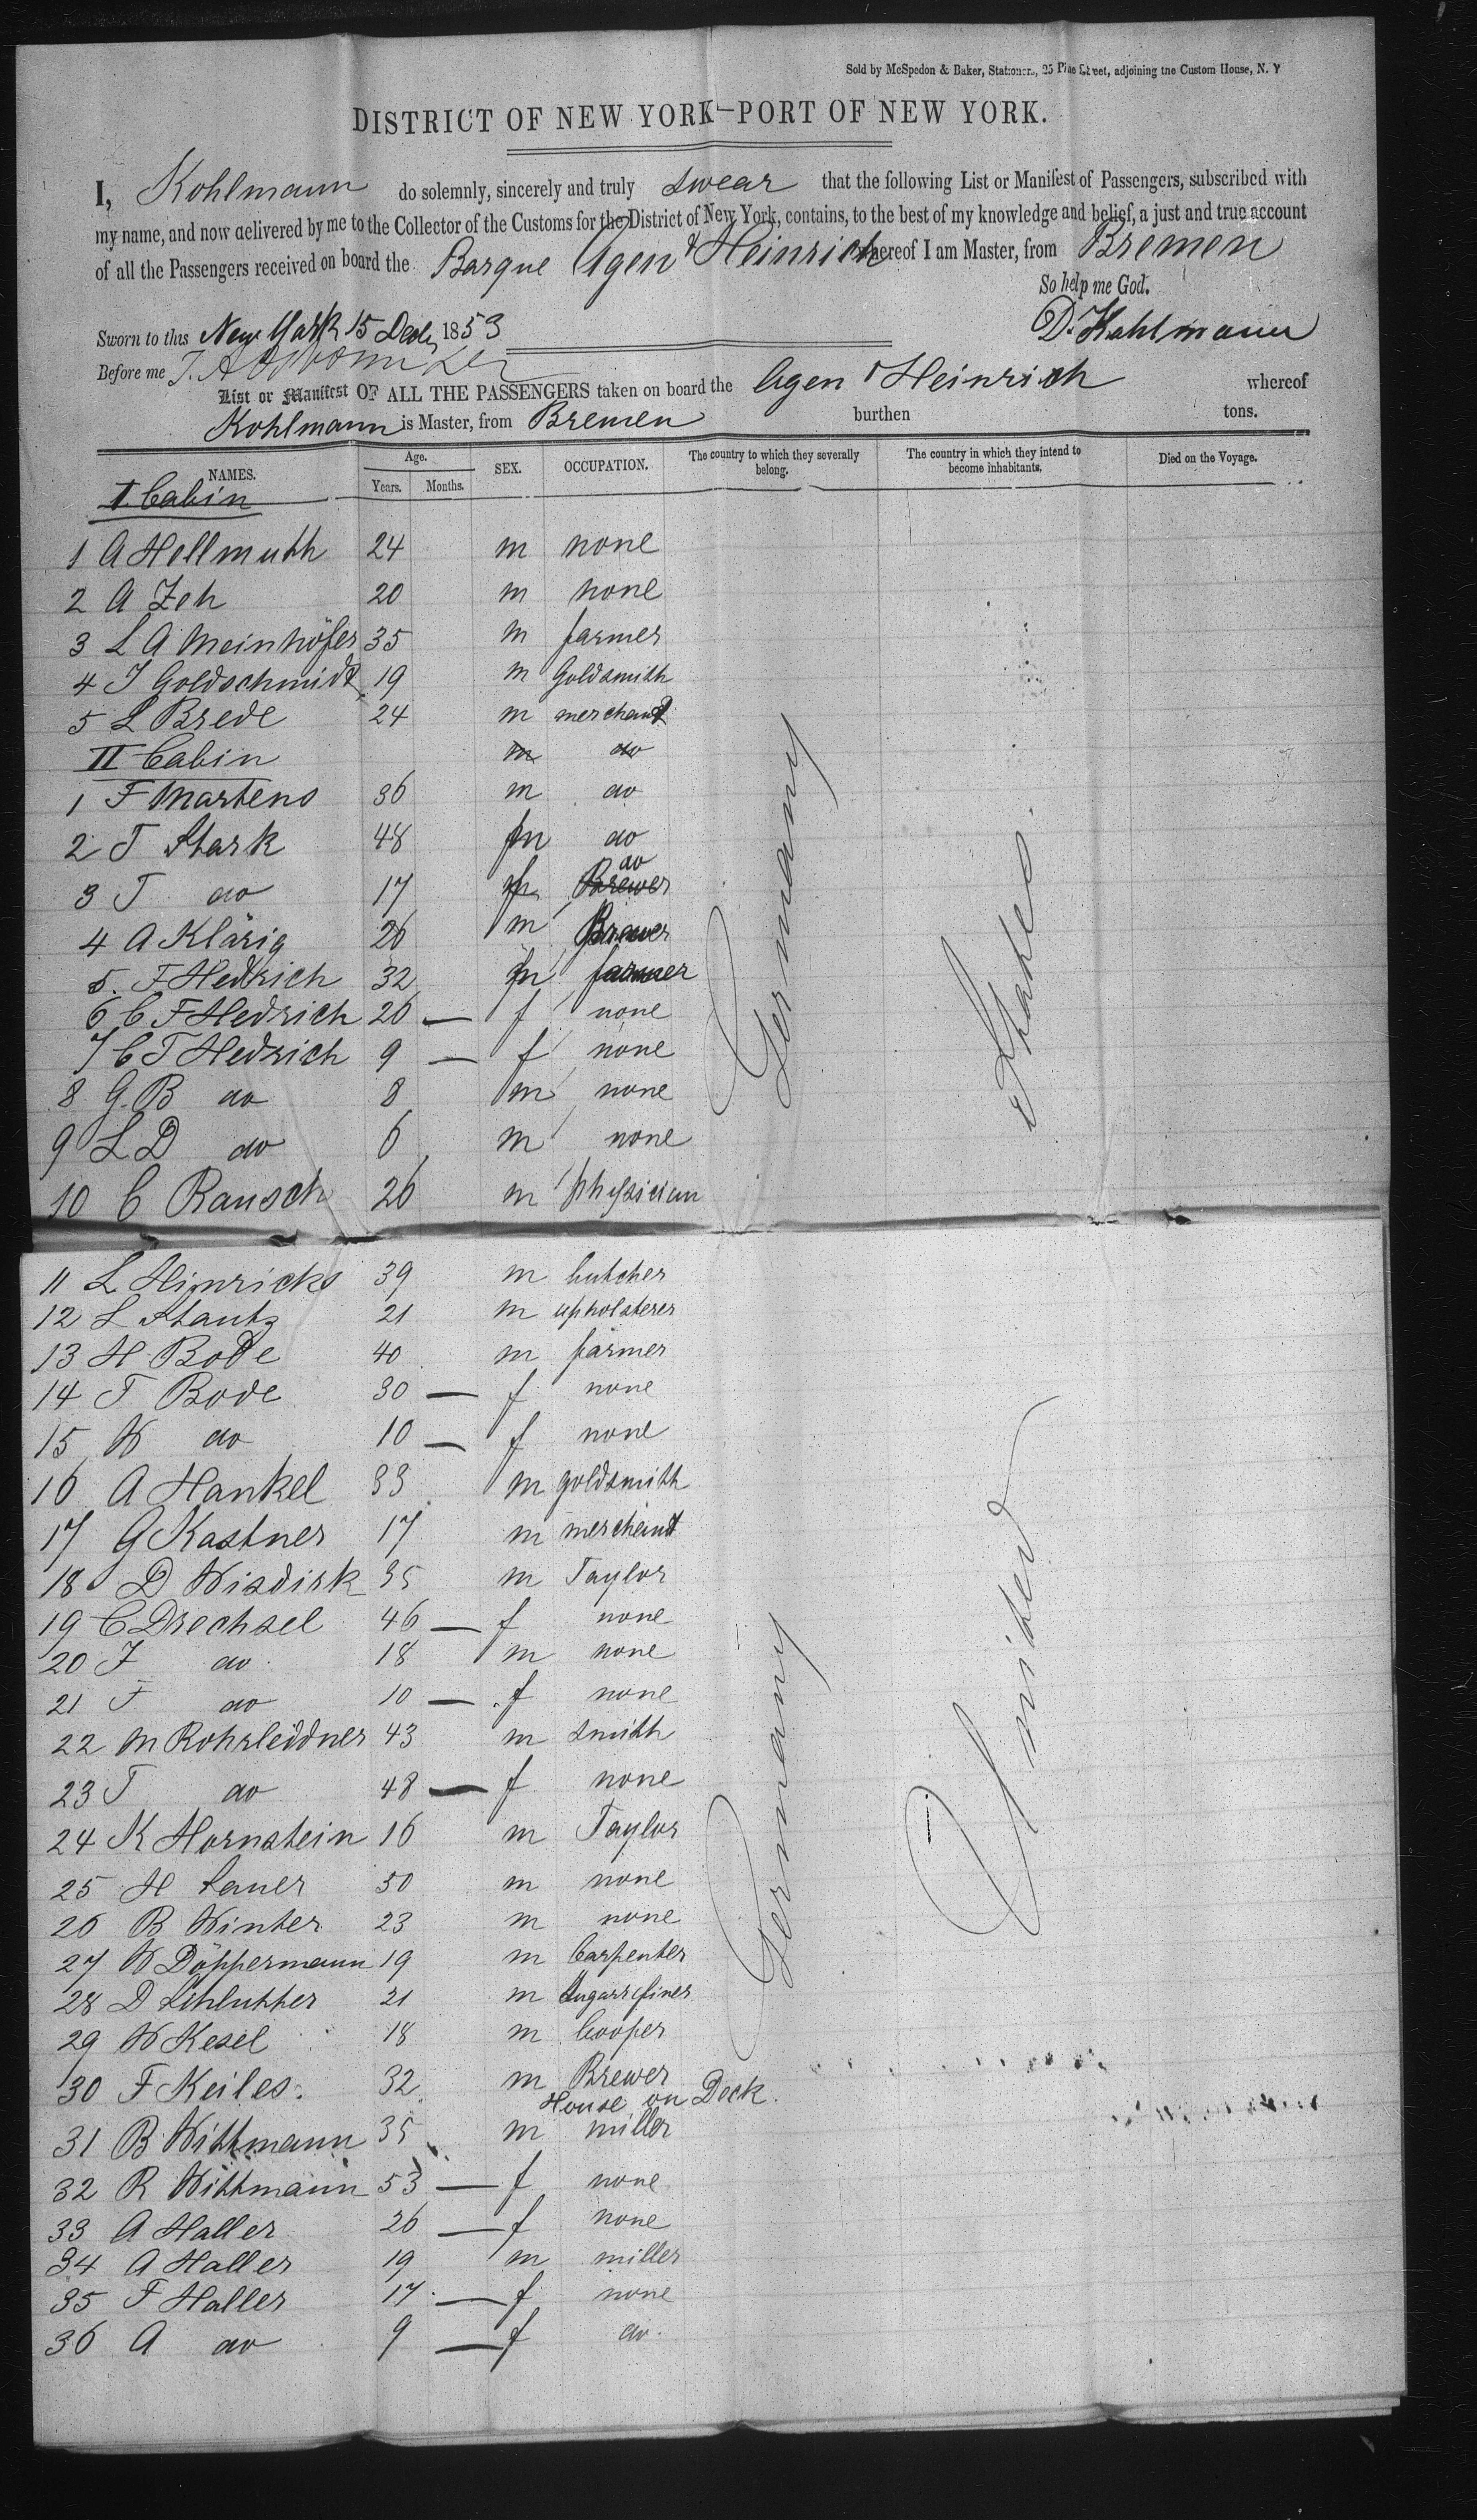 Sold by McSpedon & Baker, Stationers, 25 Pine Street, adjoining the Custom House, N. Y
DISTRICT OF NEW YORK—PORT OF NEW YORK.
I, Kohlmann do solemnly, sincerely and truly swear that the following List or Manifest of Passengers, subscribed with
my name, and now delivered by me to the Collector of the Customs for the District of New York, contains, to the best of my knowledge and belief, a just and true account
of all the Passengers received on board the Barque Agen & Heinrich whereof I am Master, from Bremen
So help me God.
Sworn to this New York 15 Decbr 1853 D. Kohlmann
Before me
List or Manifest OF ALL THE PASSENGERS taken on board the Agen & Heinrich whereof
Kohlmann is Master, from Bremen burthen tons.
NAMES. Age. Years. Months. SEX. OCCUPATION. The country to which they severally belong. The country in which they intend to become inhabitants. Died on the Voyage.
I. Cabin
1 A Hellmuth 24 m none
2 A Zeh 20 m none
3 L A Meinhöfer 35 m farmer
4 J Goldschmidt 19 m Goldsmith
5 L Brede 24 m merchant
II Cabin m do
1 F Martens 36 m do
2 T Stark 48 m do
3 T do 17 do Brewer
4 A Klärig 26 m Brewer
5. F Hedrich 32 m farmer
6 C F Hedrich 26 — f none
7 C T Hedrich 9 — f none
8 G. B do 8 m none
9 L D do 6 m none
10 C Rausch 26 m physician
11 L Hinricks 39 m butcher
12 L Stantz 21 m upholsterer
13 H Bode 40 m farmer
14 T Bode 30 — f none
15 W do 10 — f none
16 A Hankel 33 m goldsmith
17 G Kastner 17 m merchant
18 D Wisdisk 35 m Taylor
19 C Drechsel 46 — f none
20 J do 18 m none
21 F do 10 — f none
22 M Rohrleidner 43 m smith
23 T do 48 — f none
24 K Hornstein 16 m Taylor
25 H Lauer 50 m none
26 B Winter 23 m none
27 W Döppermann 19 m Carpenter
28 D Schlutter 21 m Sugarrefiner
29 W Kesel 18 m Cooper
30 F Keiles. 32 m Brewer
House on Deck.
31 B Wittmann 35 m miller
32 R Wittmann 53 — f none
33 A Haller 26 — f none
34 A Haller 19 m miller
35 F Haller 17 — f none
36 A do 9 — f do.
Germany
Germany
United States